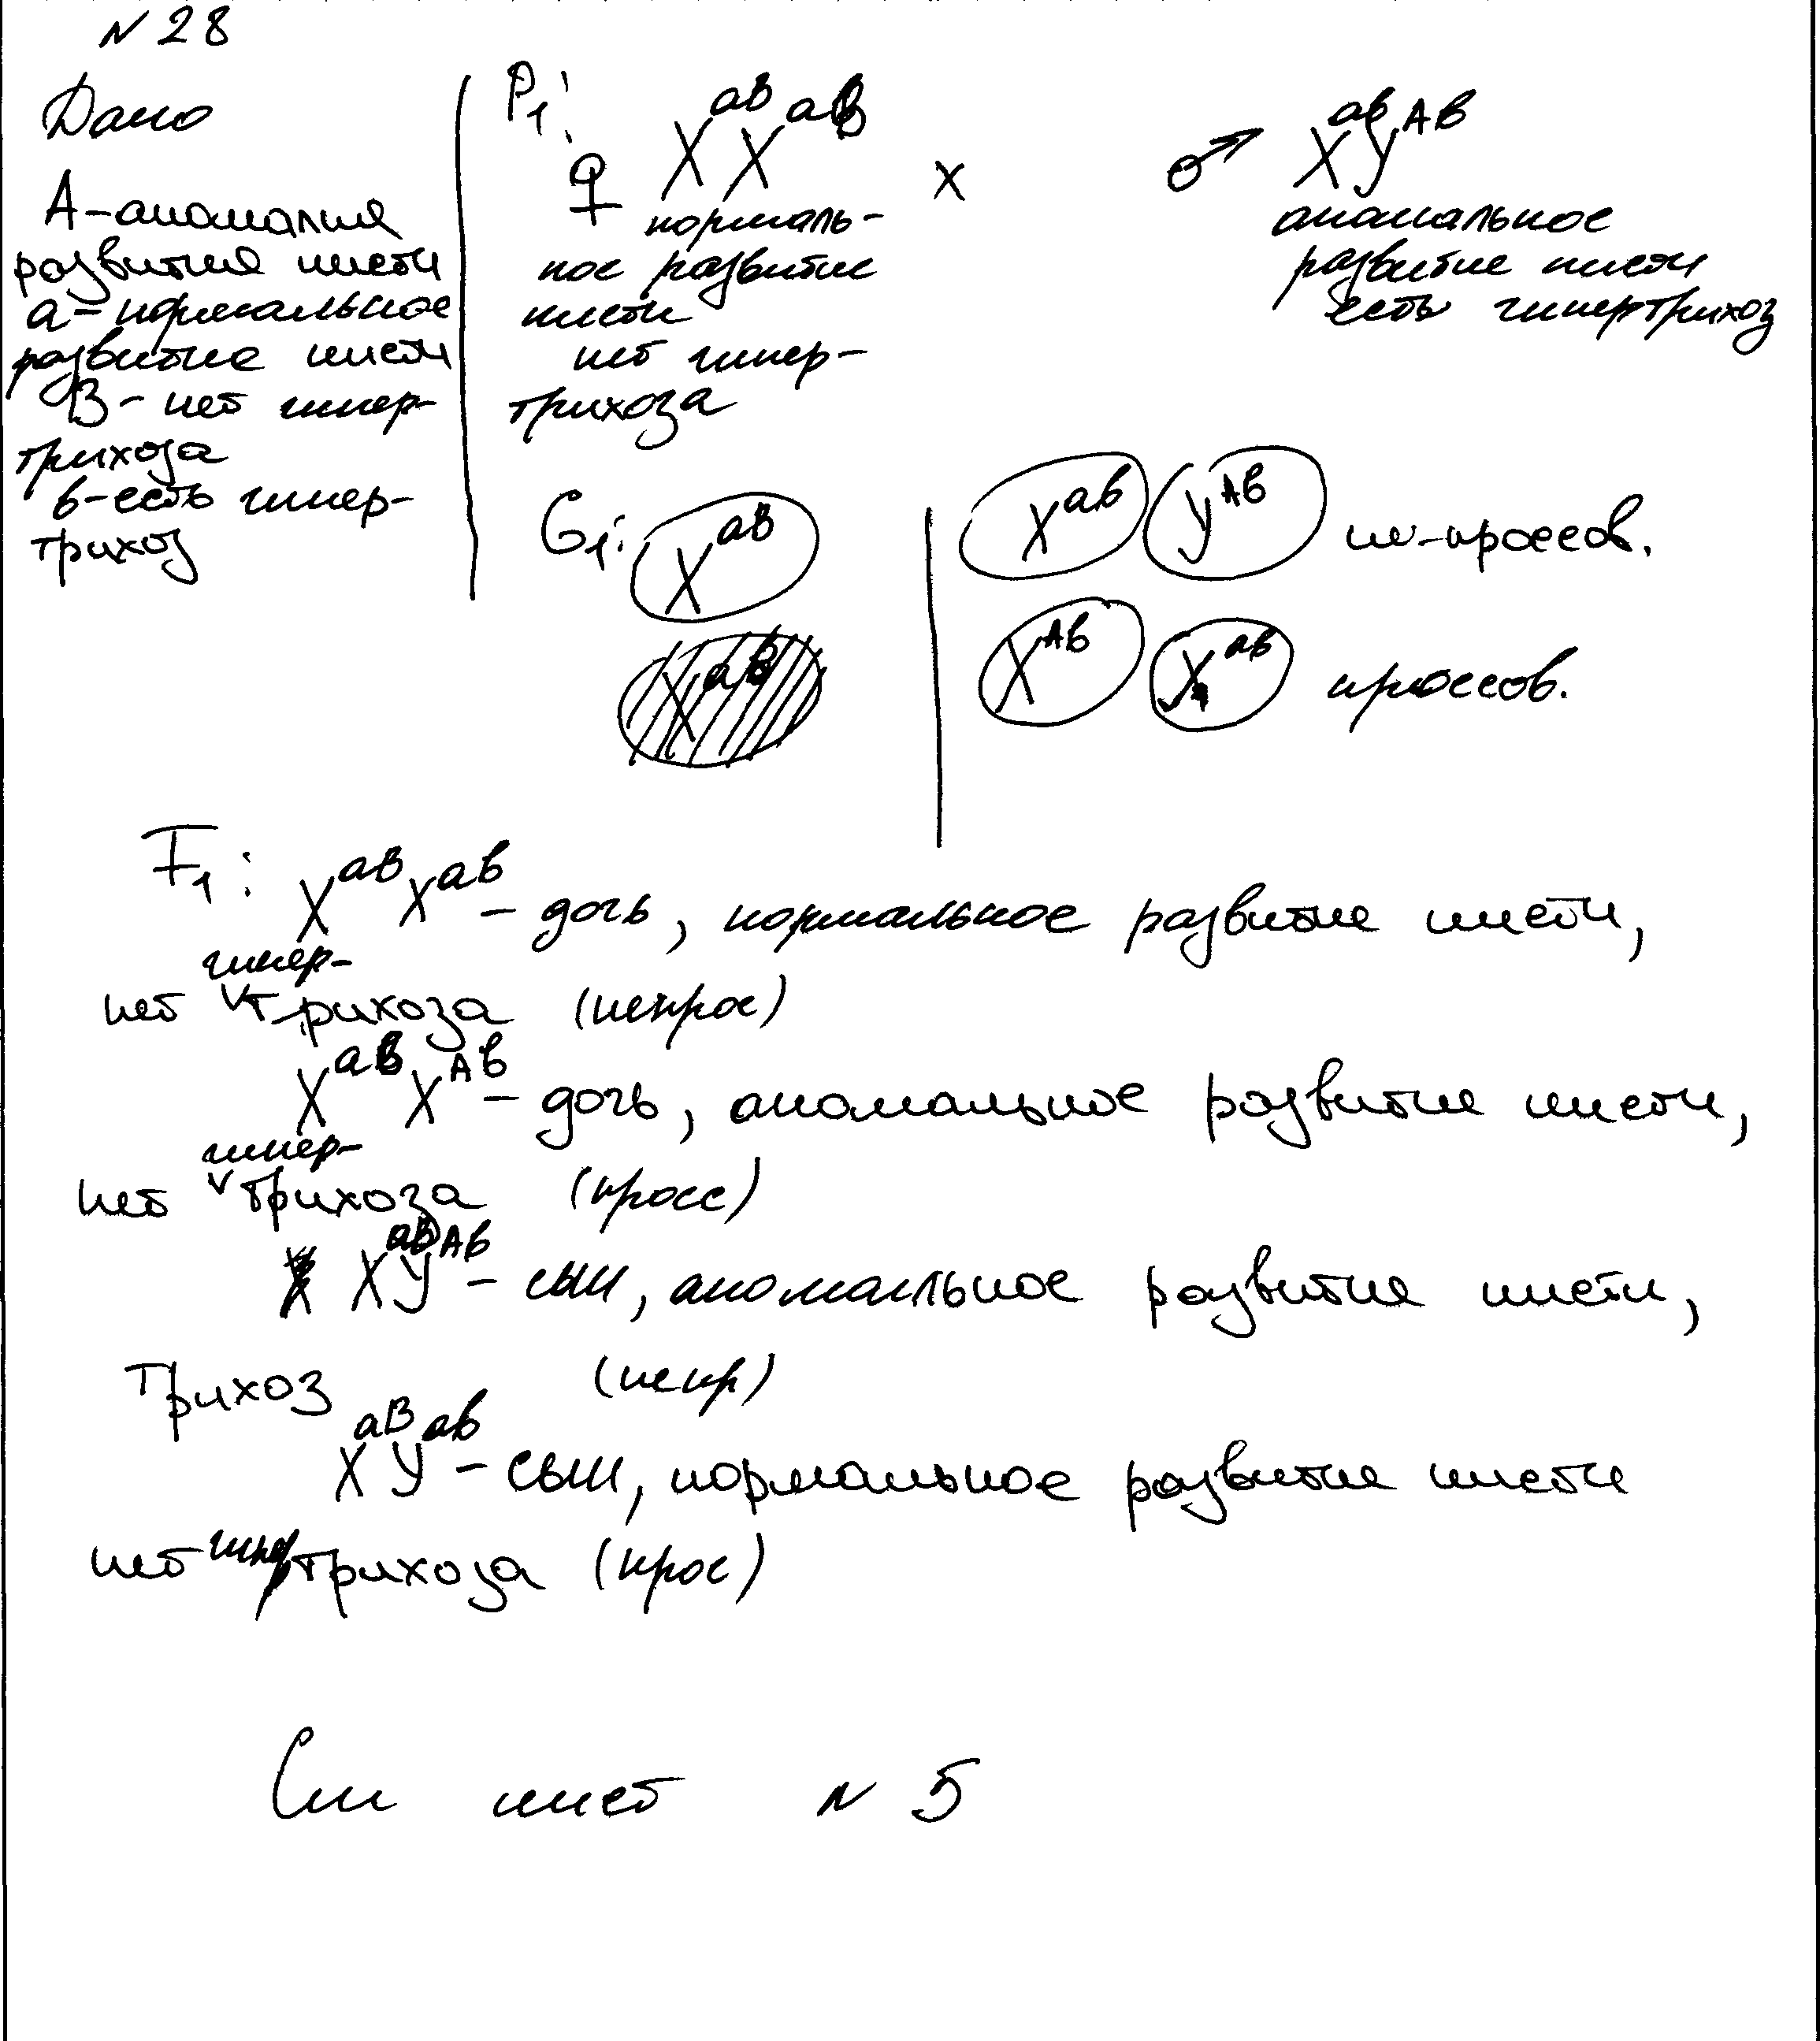 № 28
Дано
А-аномалия
развития кисти
а-нормальное
развитие кисти
В-нет гипер-
трихоза
в-есть гипер-
трихоз
P₁:
♀ XᵃᴮXᵃᴮ
х
♂ XᵃᵇYᴬᵇ
нормаль-
ное развитие
кисти
нет гипер-
трихоза
аномальное
развитие кисти
есть гипертрихоз
G₁: Xᵃᴮ
Xᵃᵇ Yᴬᵇ не-кроссов.
Xᴬᵇ Yᵃᵇ кроссов.
F₁: XᵃᴮXᵃᵇ - дочь, нормальное развитие кисти,
нет гипер-трихоза (некрос)
XᵃᴮXᴬᵇ - дочь, аномальное развитие кисти,
нет гипер-трихоза (кросс)
XᵃᴮYᴬᵇ - сын, аномальное развитие кисти,
трихоз (некр)
XᵃᴮYᵃᵇ - сын, нормальное развитие кисти
нет гипертрихоза (крос)
См лист № 5